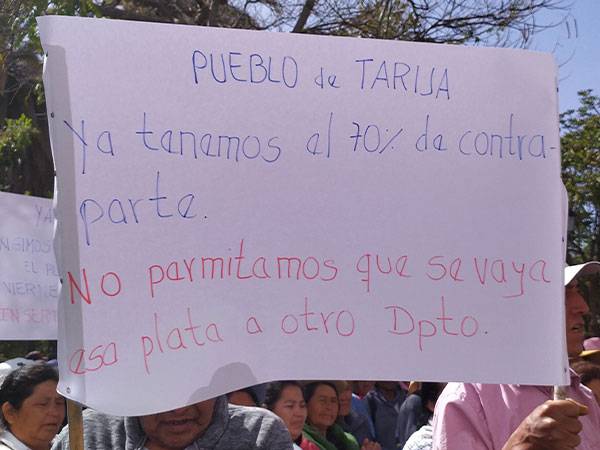 PUEBLO de TARIJA
Ya tenemos el 70% de contra-
parte.
No permitamos que se vaya
esa plata a otro Dpto.
YA
EL
VIERNE